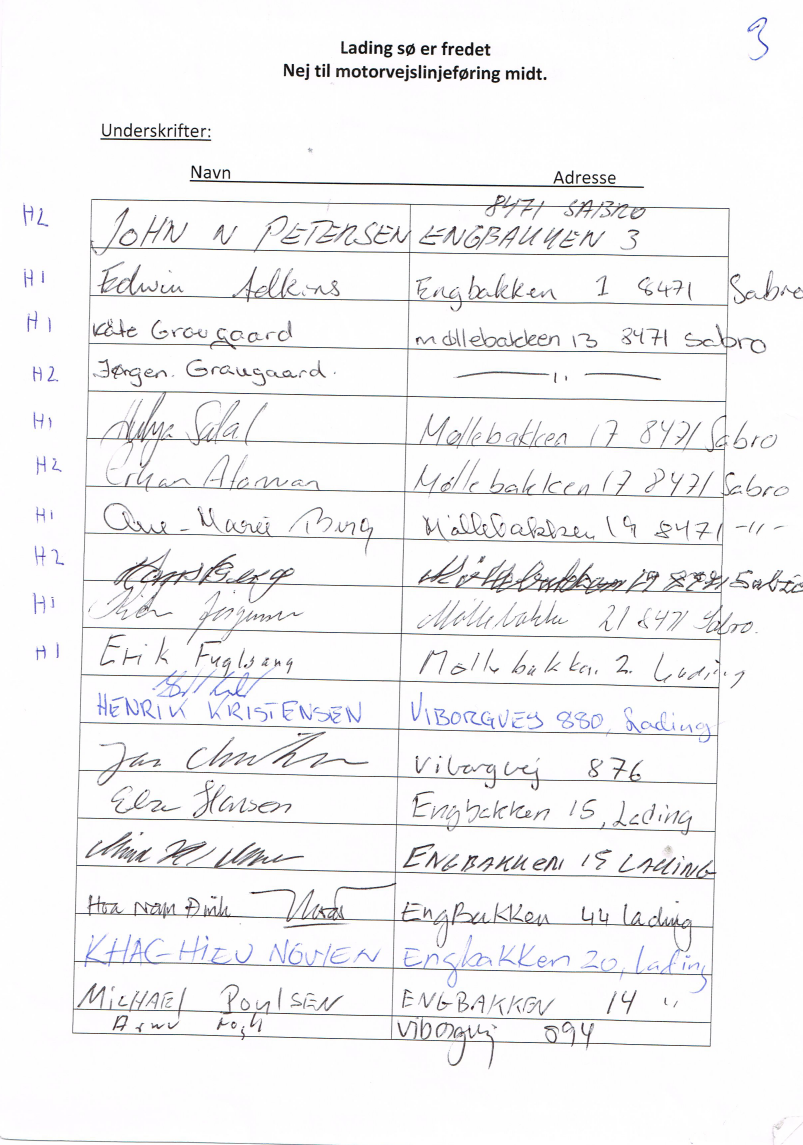 3
Lading sø er fredet
Nej til motorvejslinjeføring midt.
Underskrifter:
Navn Adresse
8471 SABRO
H2 JOHN N PETERSEN ENGBAKKEN 3
H1 Edwin Adkins Engbakken 1 8471 Sabro
H1 Käte Graugaard Møllebakken 13 8471 Sabro
H2 Jørgen Graugaard. — 11 —
H1 Møllebakken 17 8471 Sabro
H2 Erkan Ataman Møllebakken 17 8471 Sabro
H1 Ane-Marie Berg Møllebakken 19 8471 -11-
H2 Berg Møllebakken 19 8471 Sabro
H1 Jørgensen Møllebakken 21 8471 Sabro.
H1 Erik Fuglsang Møllebakken 2. Lading
HENRIK KRISTENSEN VIBORGVEJ 880, Lading
Jan Viborgvej 876
Else Hansen Engbakken 15, Lading
ENGBAKKEN 15 LADING
Hoa Nam Dinh EngBakken 44 lading
KHAC-HIEU NGUYEN Engbakken 20, lading
MiCHAEL POULSEN ENGBAKKEN 14 "
Viborgvej 894